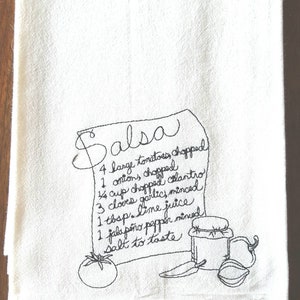 Salsa
4 large tomatoes, chopped
1 onion, chopped
¼ cup chopped cilantro
3 cloves garlic, minced
1 tbsp. lime juice
1 jalapeño pepper minced
salt to taste